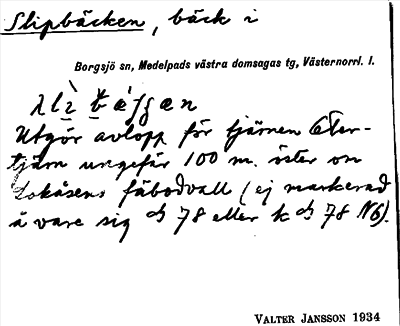 Slipbäcken, bäck i
Borgsjö sn, Medelpads västra domsagas tg, Västernorrl. l.
Utgör avlopp för tjärnen Öter-
tjärn ungefär 100 m. öster om
fäbodvall (ej markerad
å vare sig 78 eller k 78 N6).
VALTER JANSSON 1934